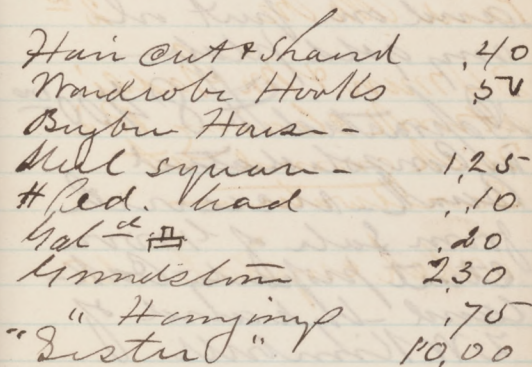 Hair cut & Shaved .40
Wardrobe Hooks .50
House -
Steel square - 1.25
# Red. head .10
Gal .20
Grindstone 2.30
" Hangings .75
"Sister" 10.00